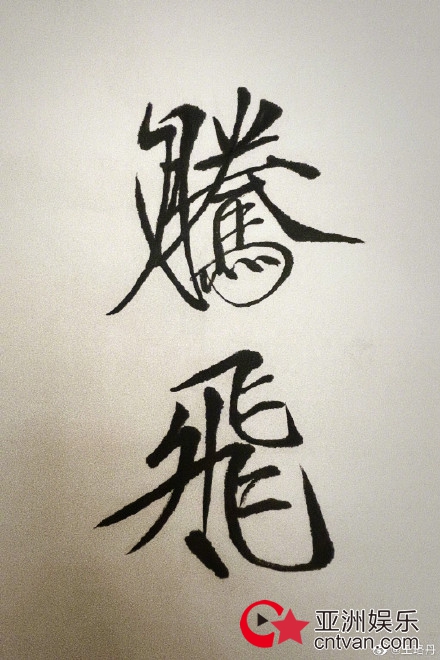 騰
飛
亚洲娱乐
cntvan.com
@王珞丹